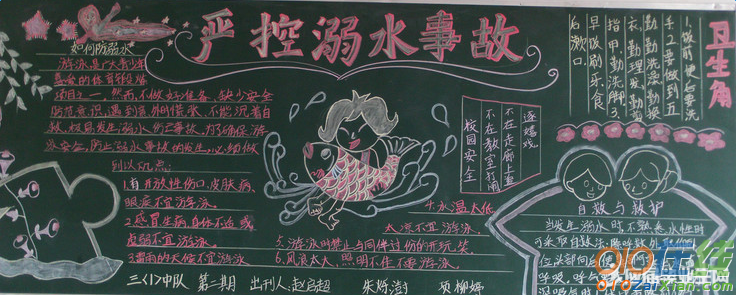 严控溺水事故
如何防溺水
游泳是广大青少年
喜爱的体育锻炼
项目之一。然而,不做好准备、缺少安全
防范意识,遇到意外时慌张、不能沉着自
救,极易发生溺水伤亡事故。为了确保游
泳安全,防止溺水事故的发生,必须做
到以下几点:
1.有开放性伤口、皮肤病、
眼疾不宜游泳。
2.感冒生病、身体不适或
虚弱不宜游泳。
3.雷雨的天气不宜游泳
4.水温太低
太凉不宜游泳。
5.游泳时禁止与同伴过份的开玩笑
6.风浪太大、照明不佳不要游泳。
三<1>中队 第二期 出刊人:赵启超 朱烁澍 项柳婷
校园安全
不在教室打闹
不在走廊上追
逐嬉戏
卫生角
1.饭前便后要洗
手2.要做到五
勤勤洗澡勤换
衣、勤理发、勤剪
指甲勤洗脚3.
早饭刷牙、食
后漱口
自救与救护
当发生溺水时不熟悉水性时
可采取自救法:除呼救外
位头部向后
呼吸,呼气